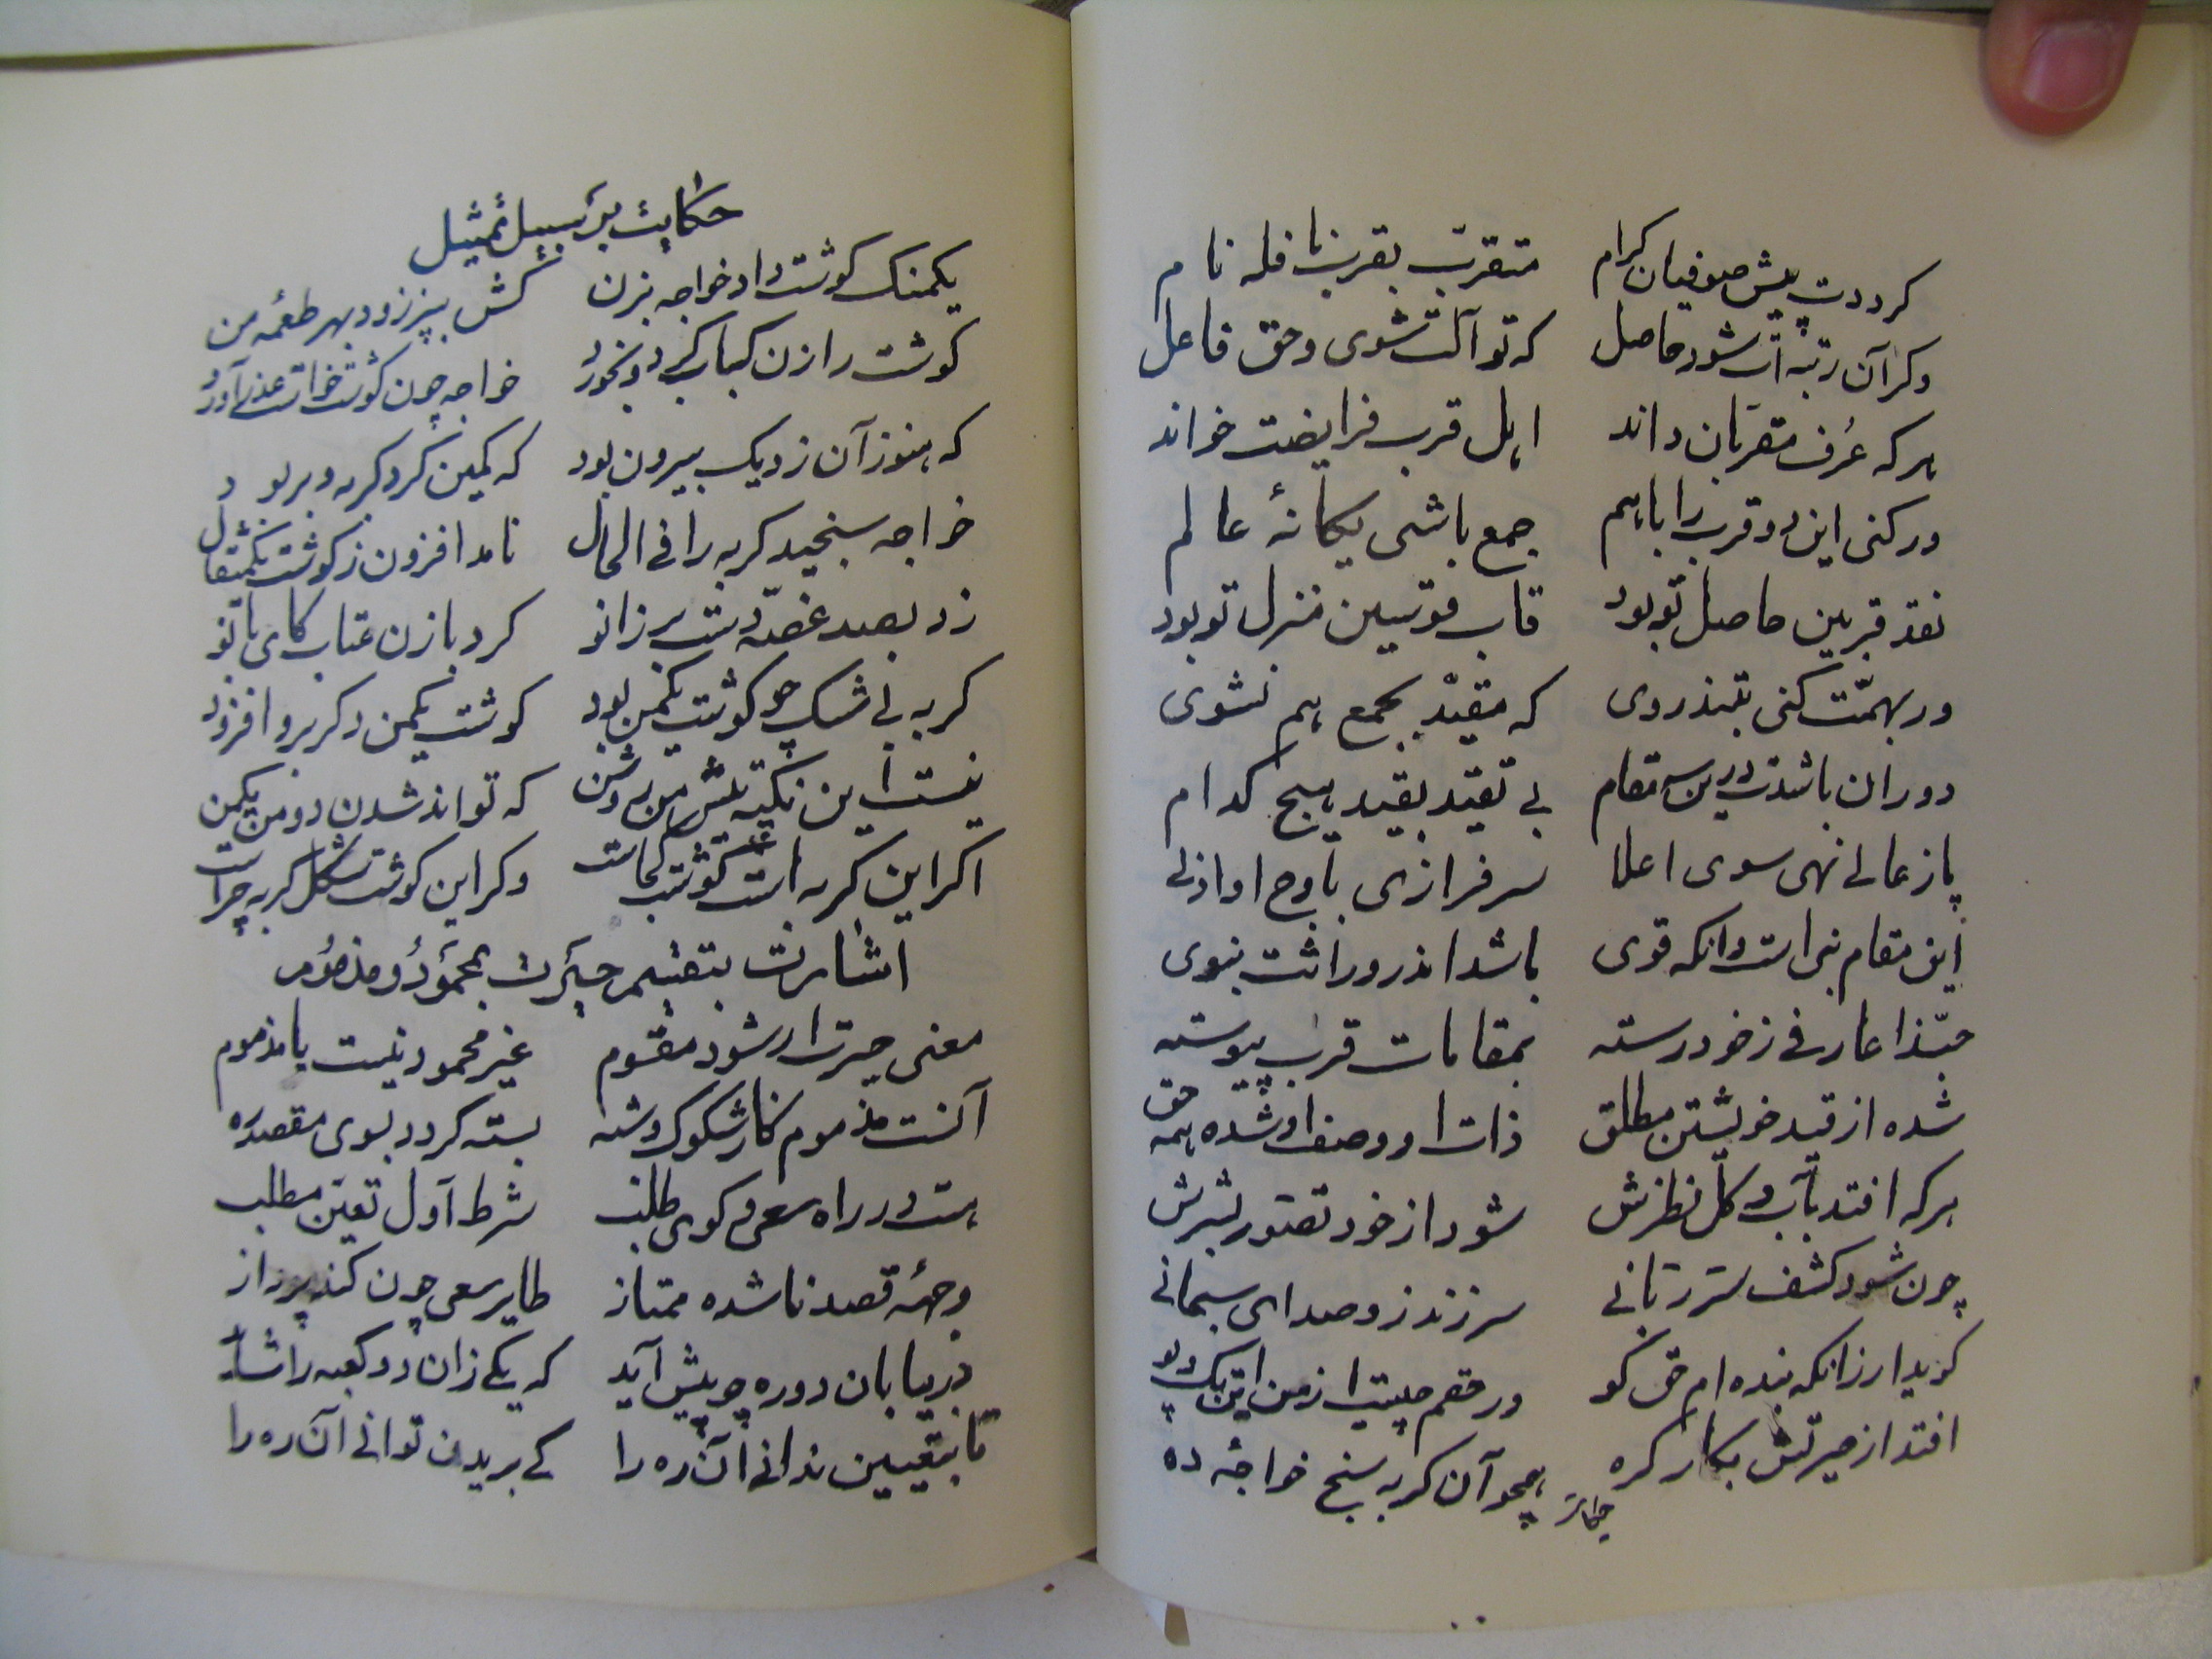 کرددت پیش صوفیان کرام متقرب بقرب نافله نام
وکر آن رتبه ات شود حاصل که تو آلت شوی و حق فاعل
هرکه عُرف مقربان داند اهل قرب فرایضت خواند
ورکنی این دو قرب را باهم جمع باشی یکانهٔ عالم
نقد قربین حاصل تو بود قاب قوسین منزل تو بود
ور بهمّت کنی بلند روی که مقیّد بجمع هم نشوی
دوران باشدت درین سه مقام بی تقید بقید هیچ کدام
پا ز عالی نهی سوی اعلا سرفرازی باوج او ادنی
این مقام نبی است وانکه قوی باشد اندر وراثت نبوی
حبّذا عارفی ز خود رسته بمقامات قرب پیوسته
شده از قید خویشتن مطلق ذات او وصف او شده همه حق
هرکه افتد بآب و کل نظرش شود از خود تصور بشرش
چون شود کشف سرّ ربانی سر زند زو صدای سبحانی
کوید ار زانکه بنده ام حق کو ور حقم چیست از من این تک وپو
افتد از حیرتش بکار کره همچو آن کربه سنج خواجهٔ ده
حکایت
حکایت بر سبیل تمثیل
یکمنک کوشت داد خواجه بزن کش بپز زود بهر طعمه من
کوشت را زن کباب کرد و بخورد خواجه چون کوشت خواست عذر آورد
که هنوز آن ز دیک بیرون بود که کمین کرد کربه و بربود
خواجه سنجید کربه را فی الحال نامد افزون ز کوشت یکمثقال
زد بصد غصّه دست بر زانو کرد با زن عتاب کای بانو
کربه بی شک چو کوشت یکمن بود کوشت یکمن دکر برو افزود
نیست این نکته پیش من روشن که تواند شدن دو من یکمن
اکر این کربه است کوشت کجاست وکر این کوشت شکل کربه چراست
اشارت بتقسیم حیرت بمحمود و مذموم
معنی حیرت ار شود مقسوم غیر محمود نیست یا مذموم
آنست مذموم کز شکوک وشبه بسته کردد بسوی مقصد ره
هست در راه سعی و کوی طلب شرط اول تعین مطلب
وجههٔ قصد ناشده ممتاز طایر سعی چون کند پرواز
در بیابان دو ره چو پیش آید که یکی زان دو کعبه را شاید
تا بتعیین ندانی آن ره را کی بریدن توانی آن ره را